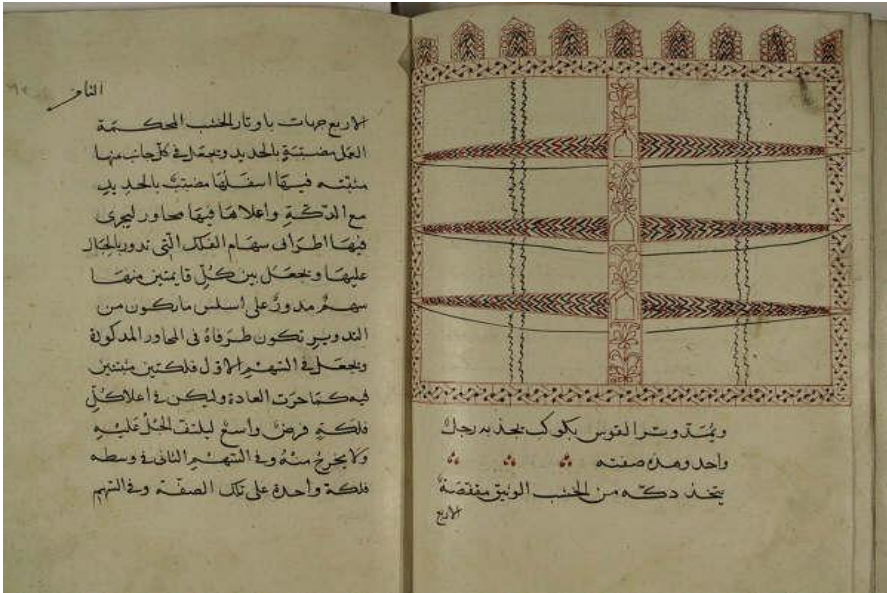 ويُمَدّ وتر القوس بكوكب يجذبه رجل
واحد وهذه صفته
يتخذ دكّه من الخشب الوثيق مقفصة
الاربع
الاربع جهات باوتار الخشب المحكمة
العمل مضببة بالحديد ويجعل في كل جانب منها
مثبته فيها اسفلها مضبب بالحديد
مع الدكّة واعلاها فيها محاور ليجرى
فيها اطراف سهام الفلك التي تدور بالحبال
عليها ويجعل بين كلّ قايمتين منها
سهم مدورٌ على اسلس مايكون من
التدوير تكون طرفاهُ فى المحاور المذكورة
ويجعل في السهم الاول فلكتين مثبتتين
فيه كما جرت العادة وليكن في اعلا كلّ
فلكة فرض واسع ليلتف الحبل عليه
ولا يخرج منه وفي السهم الثانى في وسطه
فلكة واحدة على تلك الصفة وفي السهم